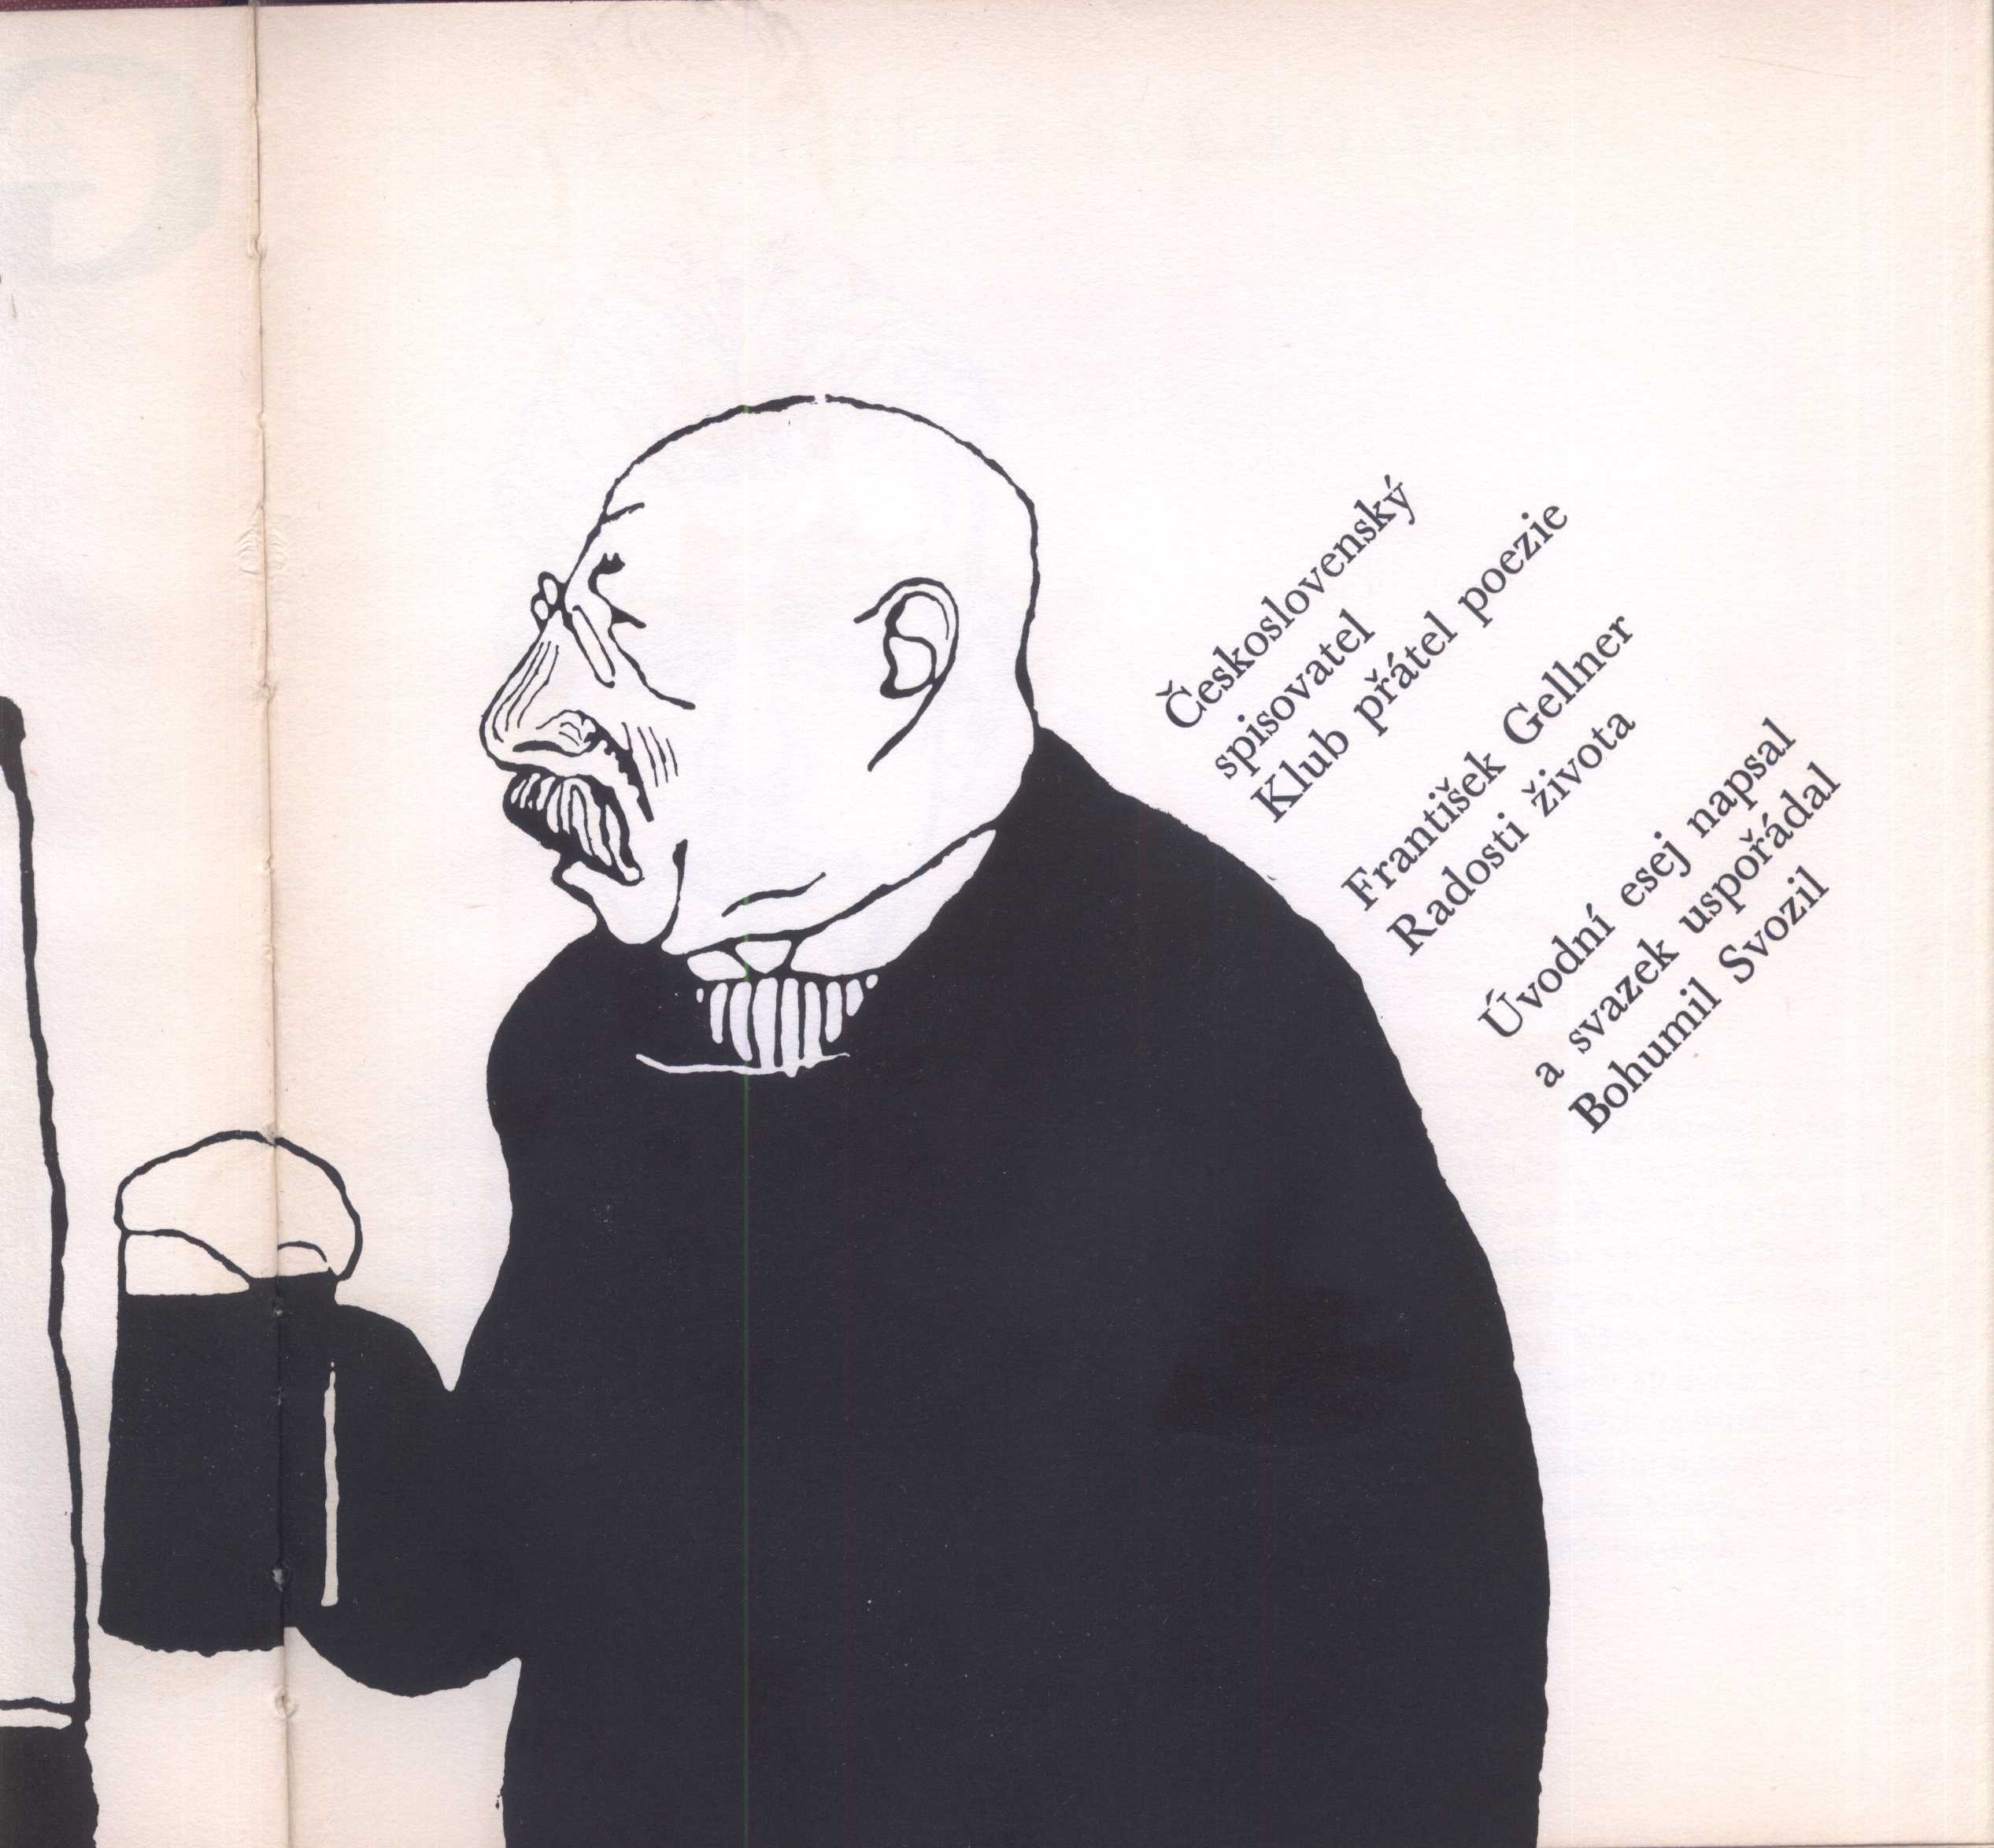 Československý
spisovatel
Klub přátel poezie
František Gellner
Radosti života
Úvodní esej napsal
a svazek uspořádal
Bohumil Svozil